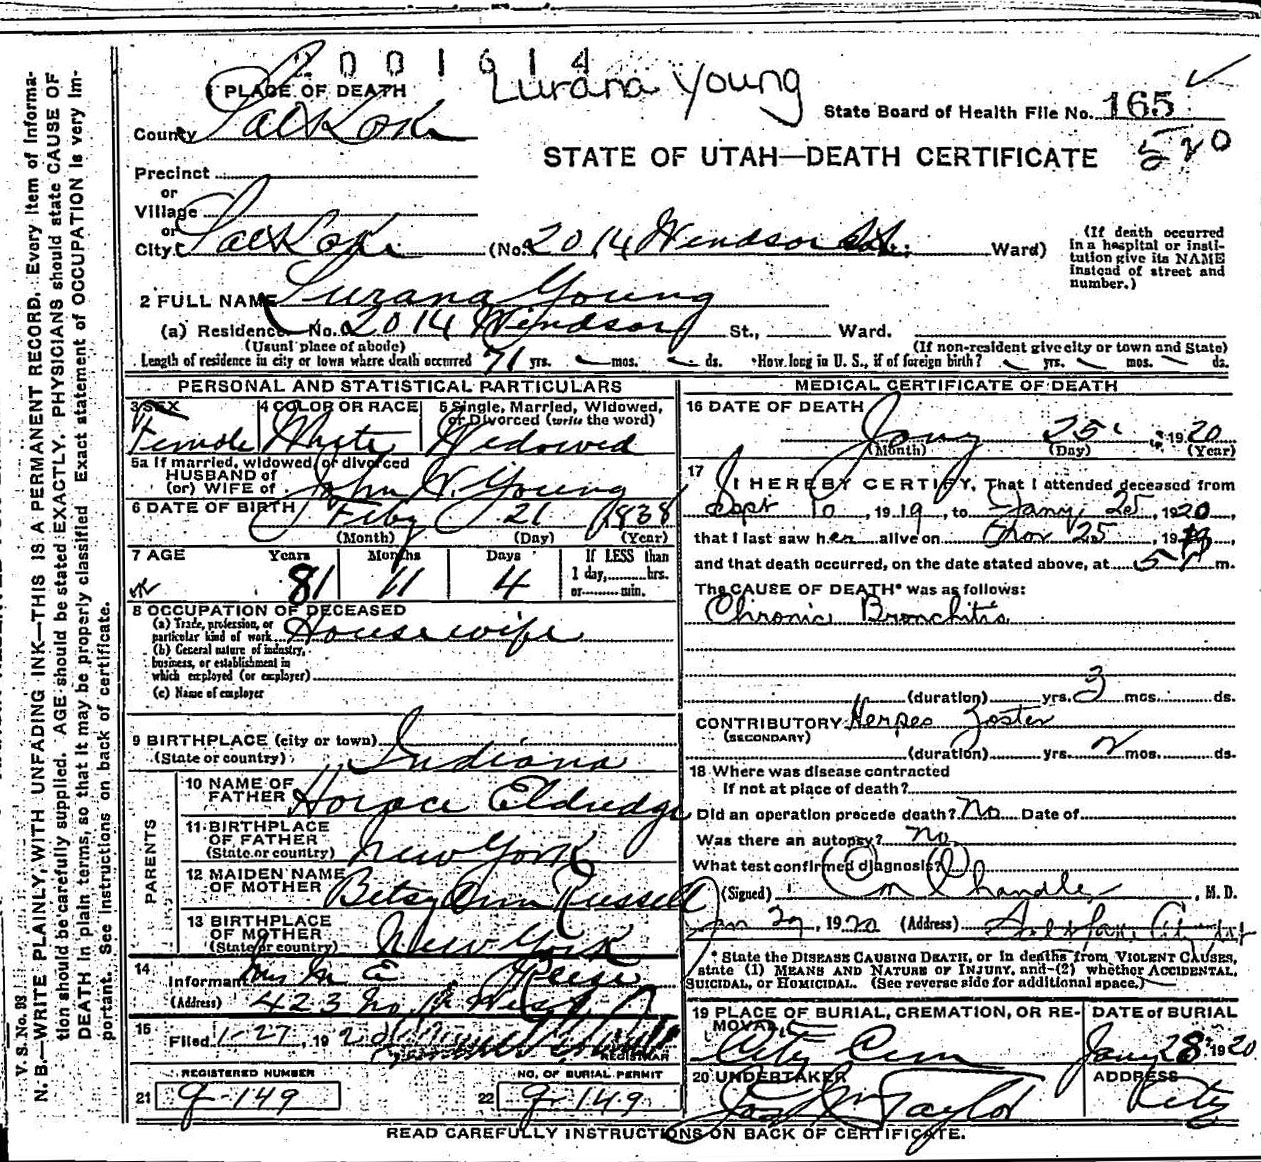 2001614
Lurana Young
1 PLACE OF DEATH
State Board of Health File No. 165
County Salt Lake
STATE OF UTAH—DEATH CERTIFICATE 520
Precinct
or
Village
or
City Salt Lake (No. 2014 Windsor St.; Ward)
(If death occurred in a hospital or insti-
tution give its NAME
instead of street and
number.)
2 FULL NAME Lurana Young
(a) Residence No. 2014 Windsor St., Ward.
(Usual place of abode) (If non-resident give city or town and State)
Length of residence in city or town where death occurred 71 yrs. mos. ds. How long in U. S., if of foreign birth? yrs. mos. ds.
PERSONAL AND STATISTICAL PARTICULARS
3 SEX 4 COLOR OR RACE 5 Single, Married, Widowed,
or Divorced (write the word)
Female White Widowed
5a If married, widowed or divorced
HUSBAND of
(or) WIFE of John W. Young
6 DATE OF BIRTH Feby 21 1838
(Month) (Day) (Year)
7 AGE Years Months Days If LESS than
81 11 4 1 day, hrs.
or min.
8 OCCUPATION OF DECEASED
(a) Trade, profession, or
particular kind of work Housewife
(b) General nature of industry,
business, or establishment in
which employed (or employer)
(c) Name of employer
9 BIRTHPLACE (city or town)
(State or country) Indiana
PARENTS
10 NAME OF
FATHER Horace Eldredge
11 BIRTHPLACE
OF FATHER
(State or country) New York
12 MAIDEN NAME
OF MOTHER Betsy Ann Russell
13 BIRTHPLACE
OF MOTHER
(State or country) New York
14
Informant Mrs M E Reese
(Address) 423 No 1st West
15
Filed 1-27, 1920
REGISTRAR
REGISTERED NUMBER NO. OF BURIAL PERMIT
21 G-149 22 G-149
MEDICAL CERTIFICATE OF DEATH
16 DATE OF DEATH
Jany 25 1920
(Month) (Day) (Year)
17
I HEREBY CERTIFY, That I attended deceased from
Sept 10, 1919, to Jany 25, 1920,
that I last saw her alive on Nov 25, 1919,
and that death occurred, on the date stated above, at 5 P m.
The CAUSE OF DEATH* was as follows:
Chronic Bronchitis
(duration) yrs. 3 mos. ds.
CONTRIBUTORY Herpes Zoster
(SECONDARY)
(duration) yrs. 2 mos. ds.
18 Where was disease contracted
If not at place of death?
Did an operation precede death? No Date of
Was there an autopsy? No.
What test confirmed diagnosis?
(Signed) Chandler, M. D.
Jan 27, 1920 (Address) Salt Lake City Ut
* State the DISEASE CAUSING DEATH, or in deaths from VIOLENT CAUSES,
state (1) MEANS AND NATURE OF INJURY, and (2) whether ACCIDENTAL,
SUICIDAL, or HOMICIDAL. (See reverse side for additional space.)
19 PLACE OF BURIAL, CREMATION, OR RE-
MOVAL DATE OF BURIAL
City Cem Jany 28 1920
20 UNDERTAKER ADDRESS
Taylor City
READ CAREFULLY INSTRUCTIONS ON BACK OF CERTIFICATE.
V. S. No. 83
N. B.—WRITE PLAINLY, WITH UNFADING INK—THIS IS A PERMANENT RECORD. Every item of informa-
tion should be carefully supplied. AGE should be stated EXACTLY. PHYSICIANS should state CAUSE OF
DEATH in plain terms, so that it may be properly classified. Exact statement of OCCUPATION is very im-
portant. See instructions on back of certificate.